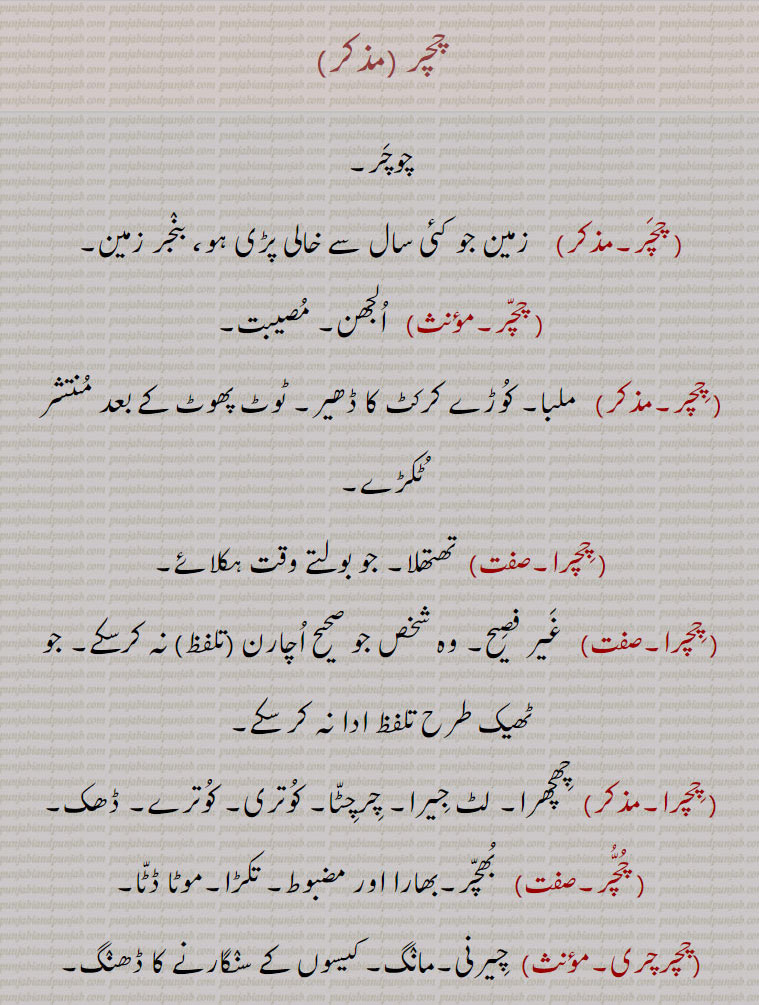 چچر (مذکر)
چوچَر۔
(چچَر۔مذکر) زمین جو کئی سال سے خالی پڑی ہو، بنْجر زمین۔
(چچّر۔مؤنث) اُلجھن۔ مُصیبت۔
(چِچر۔مذکر) ملبا۔ کوُڑے کرکٹ کا ڈھیر۔ ٹوٹ پھوٹ کے بعد مُنتشر
ٹُکڑے۔
(چِچرا۔صفت) تھتھلا۔ جو بولتے وقت ہکلائے۔
(چِچرا۔صفت) غَیر فصِیح۔ وہ شخص جو صحیح اُچارن (تلفظ) نہ کرسکے۔ جو
ٹھیک طرح تلفظ ادا نہ کر سکے۔
(چِچرا۔مذکر) چِھچھرا۔ لٹ جِیرا۔ چِرچِٹّا۔ کوُتری۔ کوُترے۔ ڈھک۔
(چُچُّر۔صفت) بُھچّر۔بھارا اور مضبوط۔ تکڑا۔موٹا ڈٹّا۔
(چچرچری۔مؤنث) چِیرنی۔مانْگ۔ کیسوں کے سنْگارنے کا ڈھنْگ۔
punjabiandpunjab.com